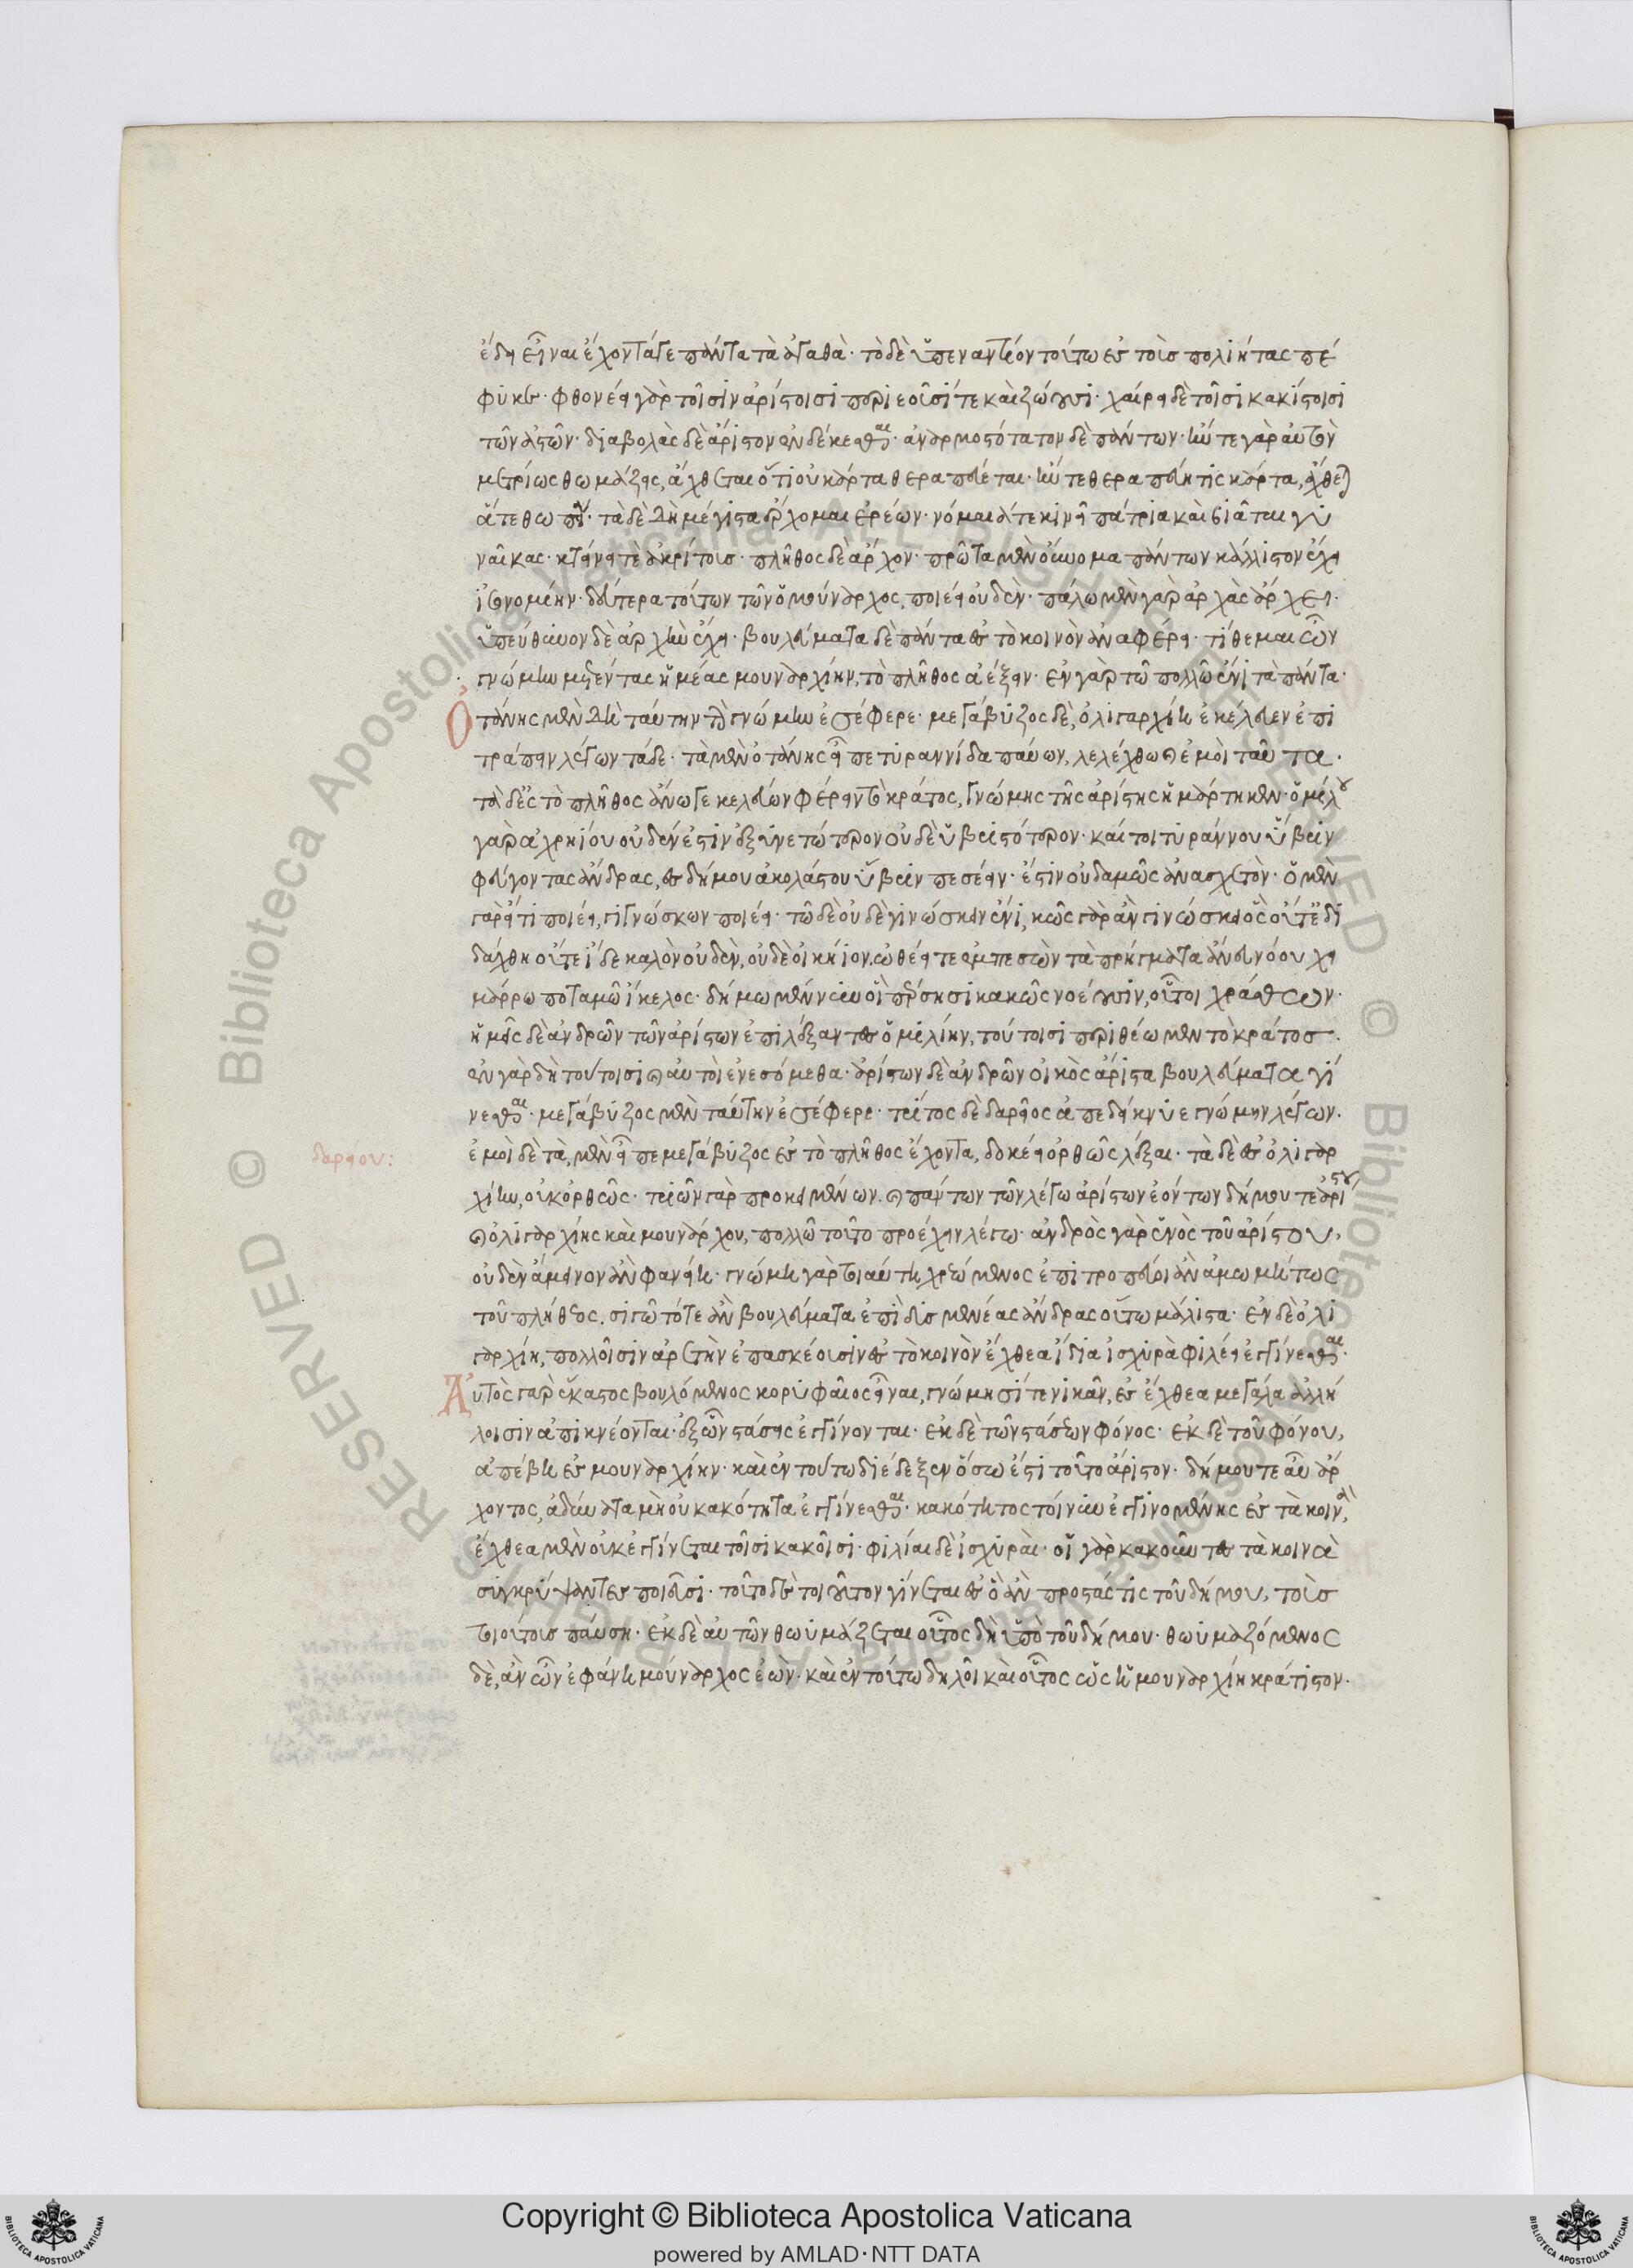 ἔδει εἶναι ἔχοντά γε πάντα τὰ ἀγαθά· τὸ δὲ ὑπεναντίον τούτου ἐς τοὺς πολιήτας πέ
φυκε· φθονέει γὰρ τοῖσιν ἀρίστοισι περιεοῦσί τε καὶ ζώουσι· χαίρει δὲ τοῖσι κακίστοισι
τῶν ἀστῶν· διαβολὰς δὲ ἄριστον ἐνδέκεσθαι· ἀναρμοστότατον δὲ πάντων· ἤν τε γὰρ αὐτὸν
μετρίως θωμάζῃς, ἄχθεται ὅτι οὐ κάρτα θεραπεύεται· ἤν τε θεραπεύῃ τις κάρτα, ἄχθεται
ἅτε θωπί· τὰ δὲ δὴ μέγιστα ἔρχομαι ἐρέων· νόμαιά τε κινεῖ πάτρια καὶ βιᾶται γυ
ναῖκας· κτείνει τὲ ἀκρίτους· πλῆθος δὲ ἄρχον· πρῶτα μὲν οὔνομα πάντων κάλλιστον ἔχει
ἰσονομίην· δεύτερα τούτων τῶν ὁ μούναρχος, ποιέει οὐδέν· πάλῳ μὲν γὰρ ἀρχὰς ἄρχει·
ὑπεύθυνον δὲ ἀρχὴν ἔχει· βουλεύματα δὲ πάντα ἐς τὸ κοινὸν ἀναφέρει· τίθεμαι ὦν
γνώμην μετέντας ἡμέας μουναρχίην, τὸ πλῆθος ἀέξειν· ἐν γὰρ τῷ πολλῷ ἔνι τὰ πάντα·
Ὀτάνης μὲν δὴ ταύτην τὴν γνώμην ἐσέφερε· μεγάβυζος δὲ, ὀλιγαρχίη ἐκέλευεν ἐπι
τράπειν λέγων τάδε· τὰ μὲν ὀτάνης εἶπε τυραννίδα παύων, λελέχθω κἀμοὶ ταῦτα·
τὰ δ' ἐς τὸ πλῆθος ἄνωγε κελεύων φέρειν τὸ κράτος, γνώμης τῆς ἀρίστης ἡμάρτηκεν· ὁμίλου
γὰρ ἀχρηίου οὐδέν ἐστιν ἀξυνετώτερον οὐδὲ ὑβριστότερον· καίτοι τυράννου ὕβριν
φεύγοντας ἄνδρας, ἐς δήμου ἀκολάστου ὕβριν πεσέειν· ἔστιν οὐδαμῶς ἀνασχετόν· ὁ μὲν
γὰρ εἴ τι ποιέει, γιγνώσκων ποιέει· τῷ δὲ οὐδὲ γινώσκειν ἔνι, κῶς γὰρ ἂν γινώσκοι ὃς οὔτε ἐδι
δάχθη οὔτε ἶδε καλὸν οὐδὲν, οὐδὲ οἰκήιον, ὠθέει τε ἐμπεσὼν τὰ πρήγματα ἄνευ νόου χει
μάρρῳ ποταμῷ ἴκελος· δήμῳ μέν νυν οἳ πέρσῃσι κακῶς νοέουσιν, οὗτοι χράσθων·
ἡμεῖς δὲ ἀνδρῶν τῶν ἀρίστων ἐπιλέξαντες ὁμιλίην, τούτοισι περιθέωμεν τὸ κράτος·
ἐν γὰρ δὴ τούτοισι καὶ αὐτοὶ ἐνεσόμεθα· ἀρίστων δὲ ἀνδρῶν οἰκὸς ἄριστα βουλεύματα γί
νεσθαι· μεγάβυζος μὲν ταύτην ἐσέφερε· τρίτος δὲ δαρεῖος ἀπεδείκνυε γνώμην λέγων·
δαρείου:
ἐμοὶ δὲ τὰ, μὲν εἶπε μεγάβυζος ἐς τὸ πλῆθος ἔχοντα, δοκέει ὀρθῶς λέξαι· τὰ δὲ ἐς ὀλιγαρ
χίην, οὐκ ὀρθῶς· τριῶν γὰρ προκειμένων καὶ πάντων τῶν λέγω ἀρίστων ἐόντων δήμου τε ἀρίστου
καὶ ὀλιγαρχίης καὶ μουνάρχου, πολλῷ τοῦτο προέχειν λέγω· ἀνδρὸς γὰρ ἑνὸς τοῦ ἀρίστου,
οὐδὲν ἄμεινον ἂν φανείη· γνώμῃ γὰρ τοιαύτῃ χρεώμενος ἐπιτροπεύοι ἂν ἀμωμήτως
τοῦ πλήθεος, σιγῷτό τε ἂν βουλεύματα ἐπὶ δυσμενέας ἄνδρας οὕτω μάλιστα· ἐν δὲ ὀλι
γαρχίῃ, πολλοῖσιν ἀρετὴν ἐπασκέουσιν ἐς τὸ κοινὸν ἔχθεα ἴδια ἰσχυρὰ φιλέει ἐγγίνεσθαι·
Αὐτὸς γὰρ ἕκαστος βουλόμενος κορυφαῖος εἶναι, γνώμῃσί τε νικᾶν, ἐς ἔχθεα μεγάλα ἀλλή
λοισιν ἀπικνέονται· ἐξ ὧν στάσεις ἐγγίνονται· ἐκ δὲ τῶν στασίων φόνος· ἐκ δὲ τοῦ φόνου,
ἀπέβη ἐς μουναρχίην· καὶ ἐν τούτῳ διέδεξεν ὅσῳ ἐστὶ τοῦτο ἄριστον· δήμου τε αὖ ἄρ
χοντος, ἀδύνατα μὴ οὐ κακότητα ἐγγίνεσθαι· κακότητος τοίνυν ἐγγινομένης ἐς τὰ κοινὰ,
ἔχθεα μὲν οὐκ ἐγγίνεται τοῖσι κακοῖσι· φιλίαι δὲ ἰσχυραί· οἱ γὰρ κακοῦντες τὰ κοινὰ
συγκρύψαντες ποιεῦσι· τοῦτο δὲ τοιοῦτον γίνεται ἐς ὃ ἂν προστάς τις τοῦ δήμου, τοὺς
τοιούτους παύσῃ· ἐκ δὲ αὐτῶν θωυμάζεται οὗτος δὴ ὑπὸ τοῦ δήμου· θωυμαζόμενος
δὲ, ἀν' ὦν ἐφάνη μούναρχος ἐών· καὶ ἐν τούτῳ δηλοῖ καὶ οὗτος ὡς ἡ μουναρχίη κράτιστον·
Copyright © Biblioteca Apostolica Vaticana
powered by AMLAD·NTT DATA